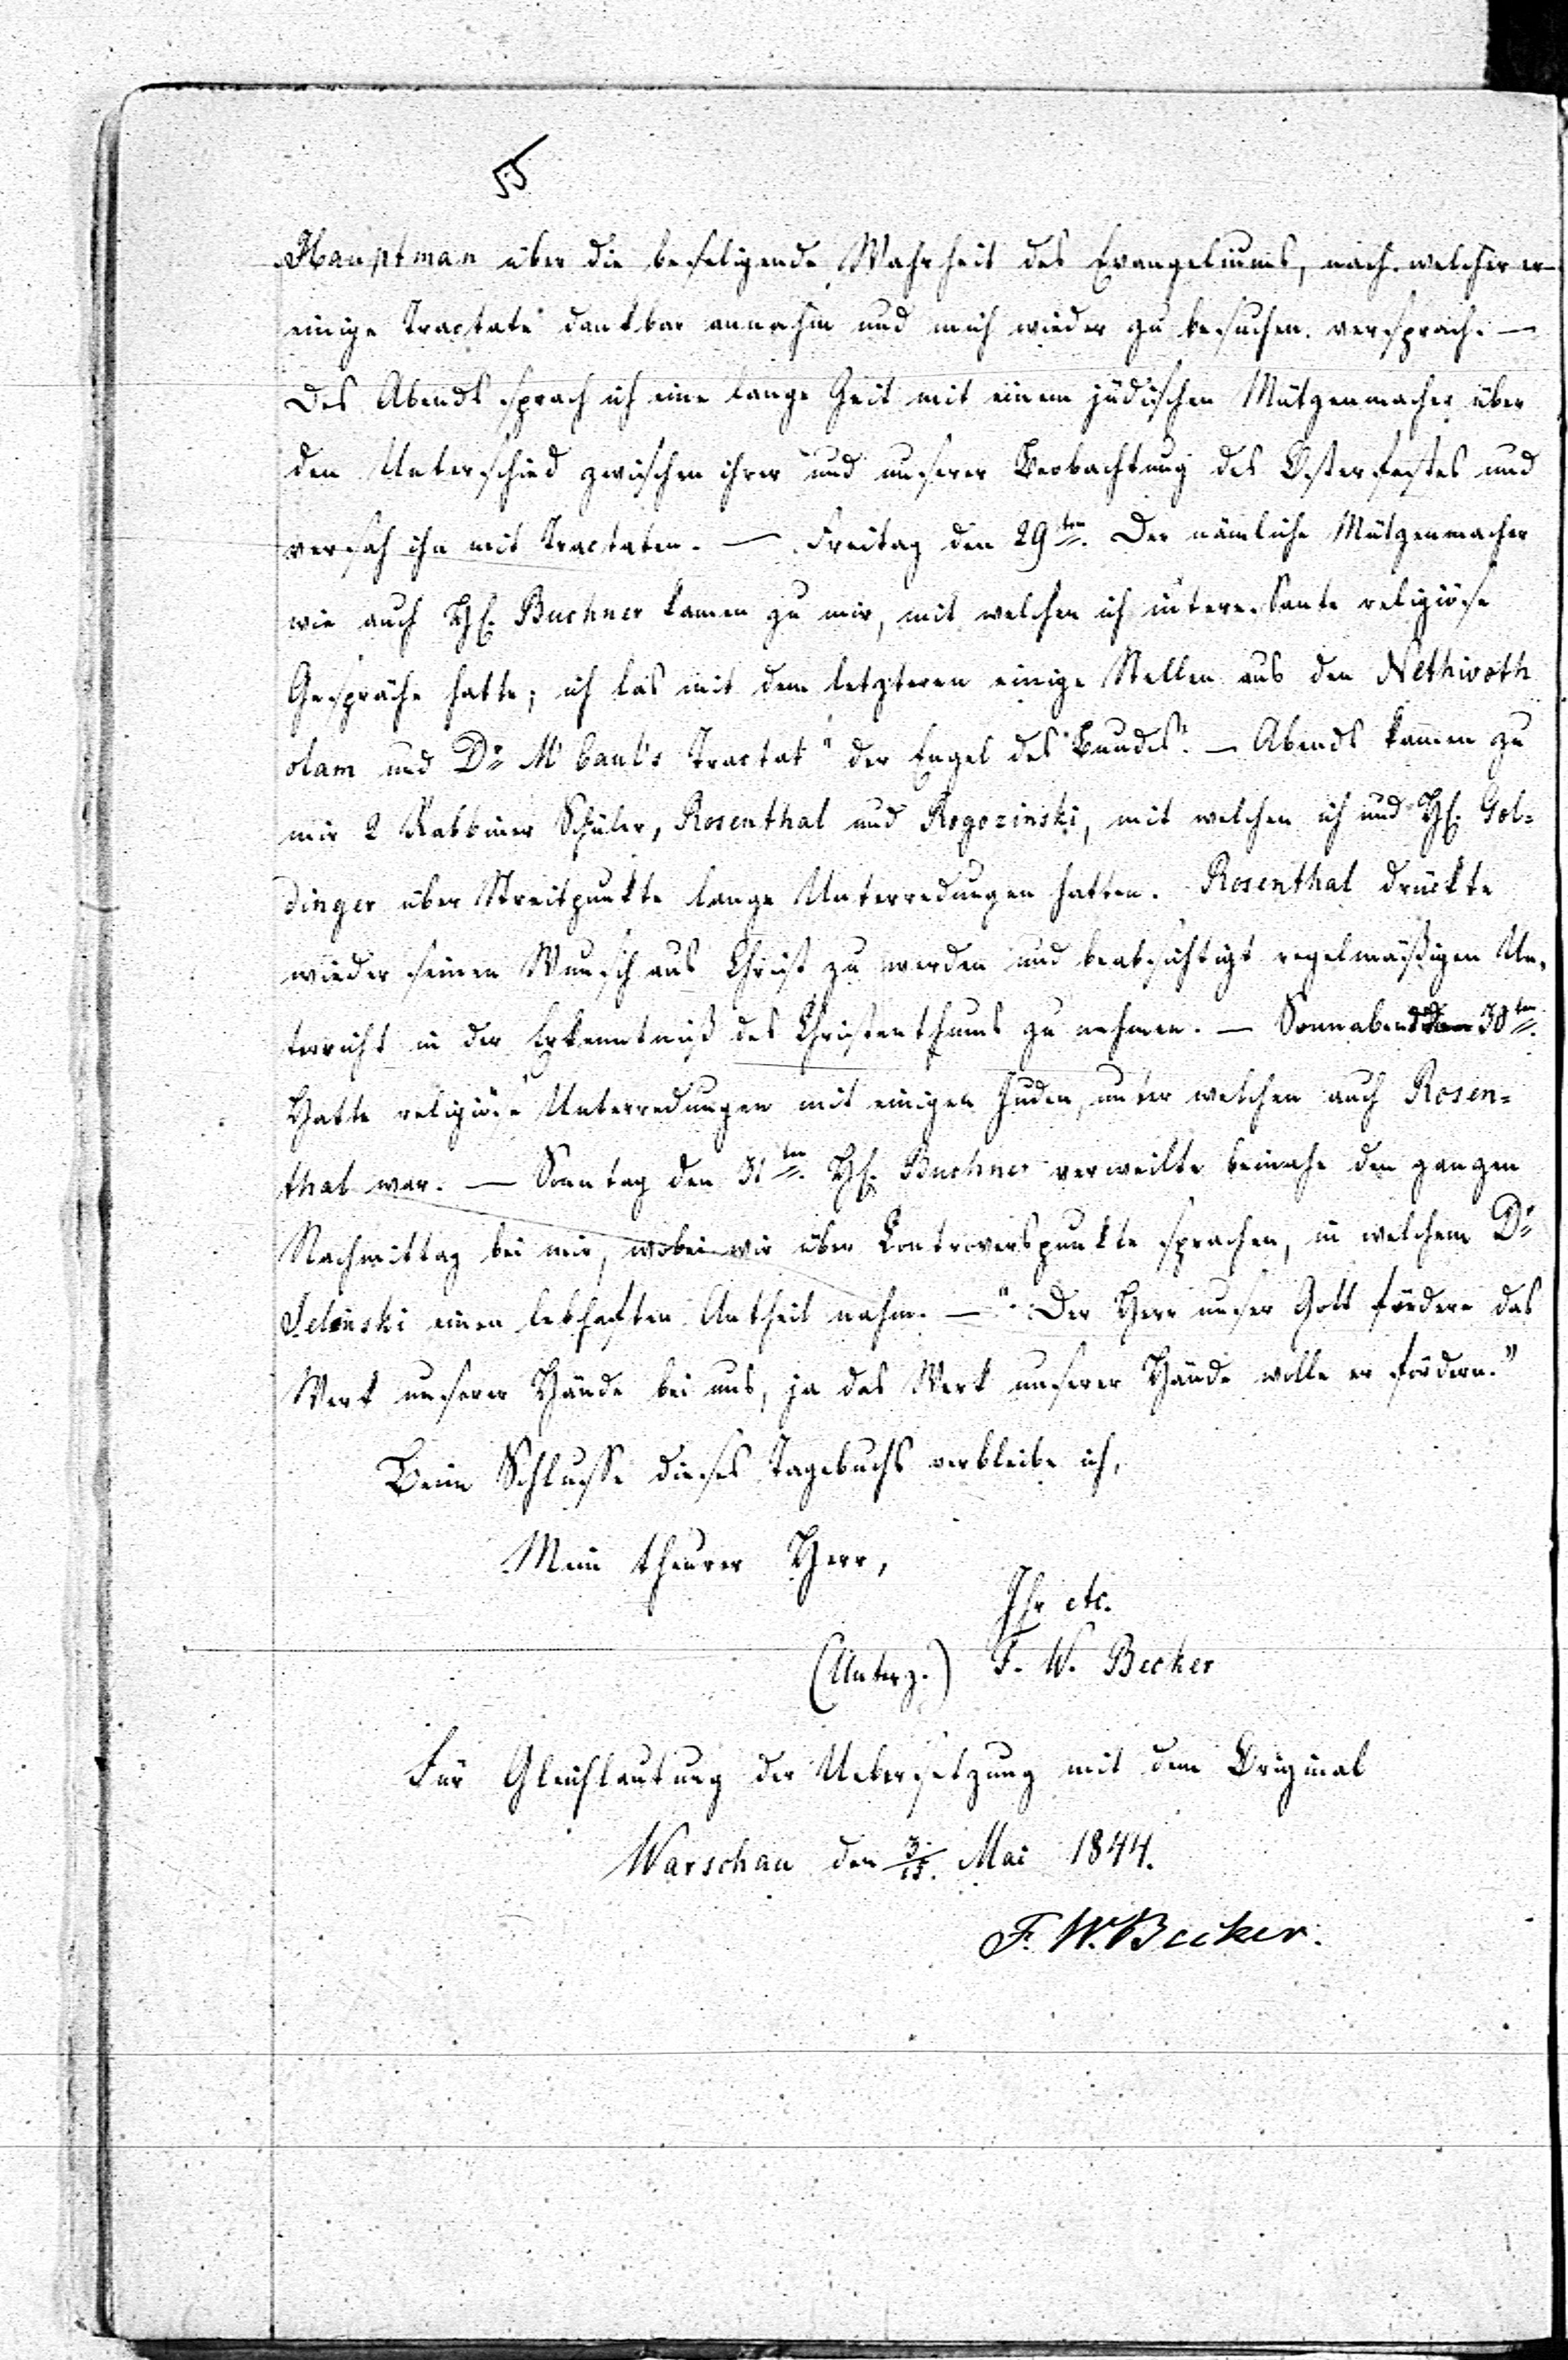 55
Hauptman über die beseligende Wahrheit des Evangeliums, nach welcher er
einige Tractate dankbar annahm und mich wieder zu besuchen versprach. —
Des Abends sprach ich eine lange Zeit mit einem jüdischen Mützenmacher über
den Unterschied zwischen ihrer und unserer Beobachtung des Osterfestes und
versah ihn mit Tractaten. — Freitag den 29ten. Der nämliche Mützenmacher
wie auch Hr. Buchner kamen zu mir, mit welchen ich interessante religiöse
Gespräche hatte; ich las mit dem letzteren einige Stellen aus den Nethivoth
olam und Dr McCaul's Tractat "der Engel des Bundes". — Abends kamen zu
mir 2 Rabbiner Schüler, Rosenthal und Rogozinski, mit welchen ich und Hr. Gol=
dinger über Streitpunkte lange Unterredungen hatten. Rosenthal drückte
wieder seinen Wunsch aus Christ zu werden und beabsichtigt regelmäßigen Un=
terricht in der Erkenntniß des Christenthums zu nehmen. — Sonnabend den 30ten.
Hatte religiöse Unterredungen mit einigen Juden, unter welchen auch Rosen=
thal war. — Sonntag den 31ten. Hr. Buchner verweilte beinahe den ganzen
Nachmittag bei mir, wobei wir über Controverspunkte sprachen, in welchem Dr
Jelinski einen lebhaften Antheil nahm. — "Der Herr unser Gott fördere das
Werk unserer Hände bei uns, ja das Werk unserer Hände wolle er fördern."
Beim Schlusse dieses Tagebuchs verbleibe ich,
Mein theurer Herr,
Ihr etc.
(Unterz.) F. W. Becker
Für Gleichlautung der Uebersetzung mit dem Original
Warschau den 3/15. Mai 1844.
F. W. Becker.